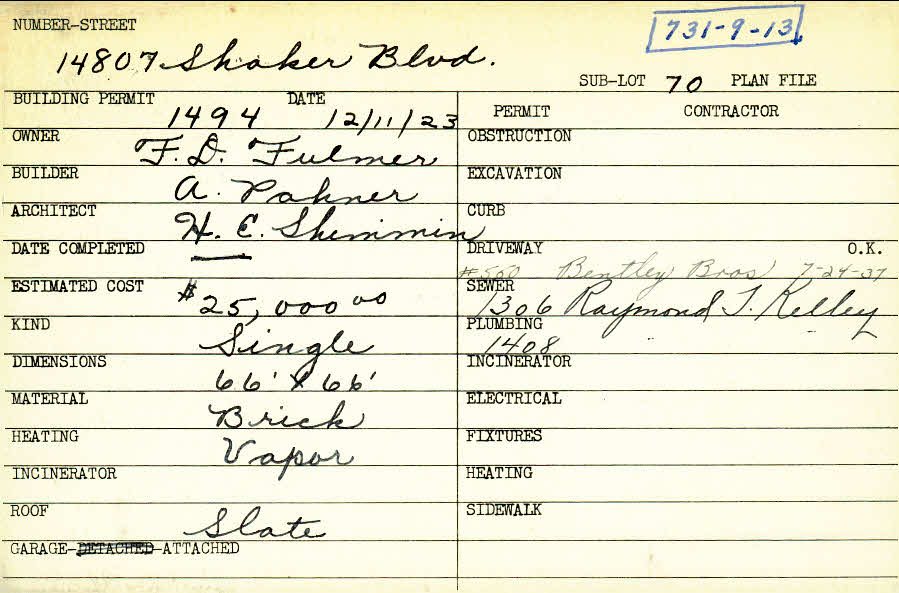 NUMBER-STREET
731-9-13
14807 Shaker Blvd.
SUB-LOT 70 PLAN FILE
BUILDING PERMIT DATE
1494 12/11/23
PERMIT CONTRACTOR
OWNER F. D. Fulmer
OBSTRUCTION
BUILDER A. Pahner
EXCAVATION
ARCHITECT H. E. Shimmin
CURB
DATE COMPLETED —
DRIVEWAY O.K.
#560 Bentley Bros 7-24-37
ESTIMATED COST $25,000 00
SEWER
1306 Raymond T. Kelley
KIND Single
PLUMBING
1408
DIMENSIONS 66' x 66'
INCINERATOR
MATERIAL Brick
ELECTRICAL
HEATING Vapor
FIXTURES
INCINERATOR
HEATING
ROOF Slate
SIDEWALK
GARAGE-DETACHED-ATTACHED